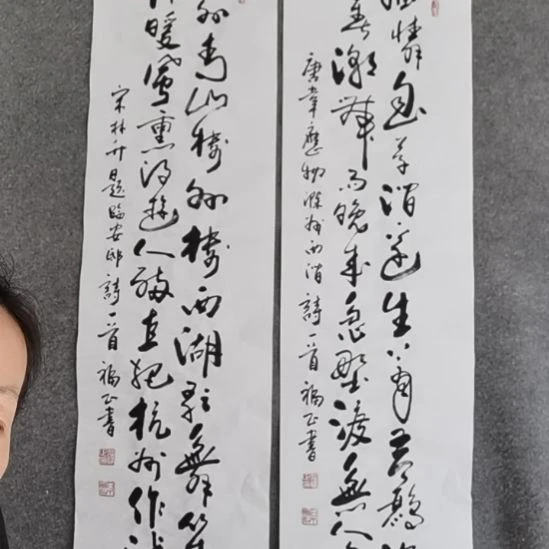 憐幽草澗邊生上有黃鸝深
春潮帶雨晚來急野渡無人
唐韋應物滁州西澗詩一首 福正書
外青山樓外樓西湖歌舞幾
暖風熏得遊人醉直把杭州作汴
宋林升題臨安邸詩一首 福正書